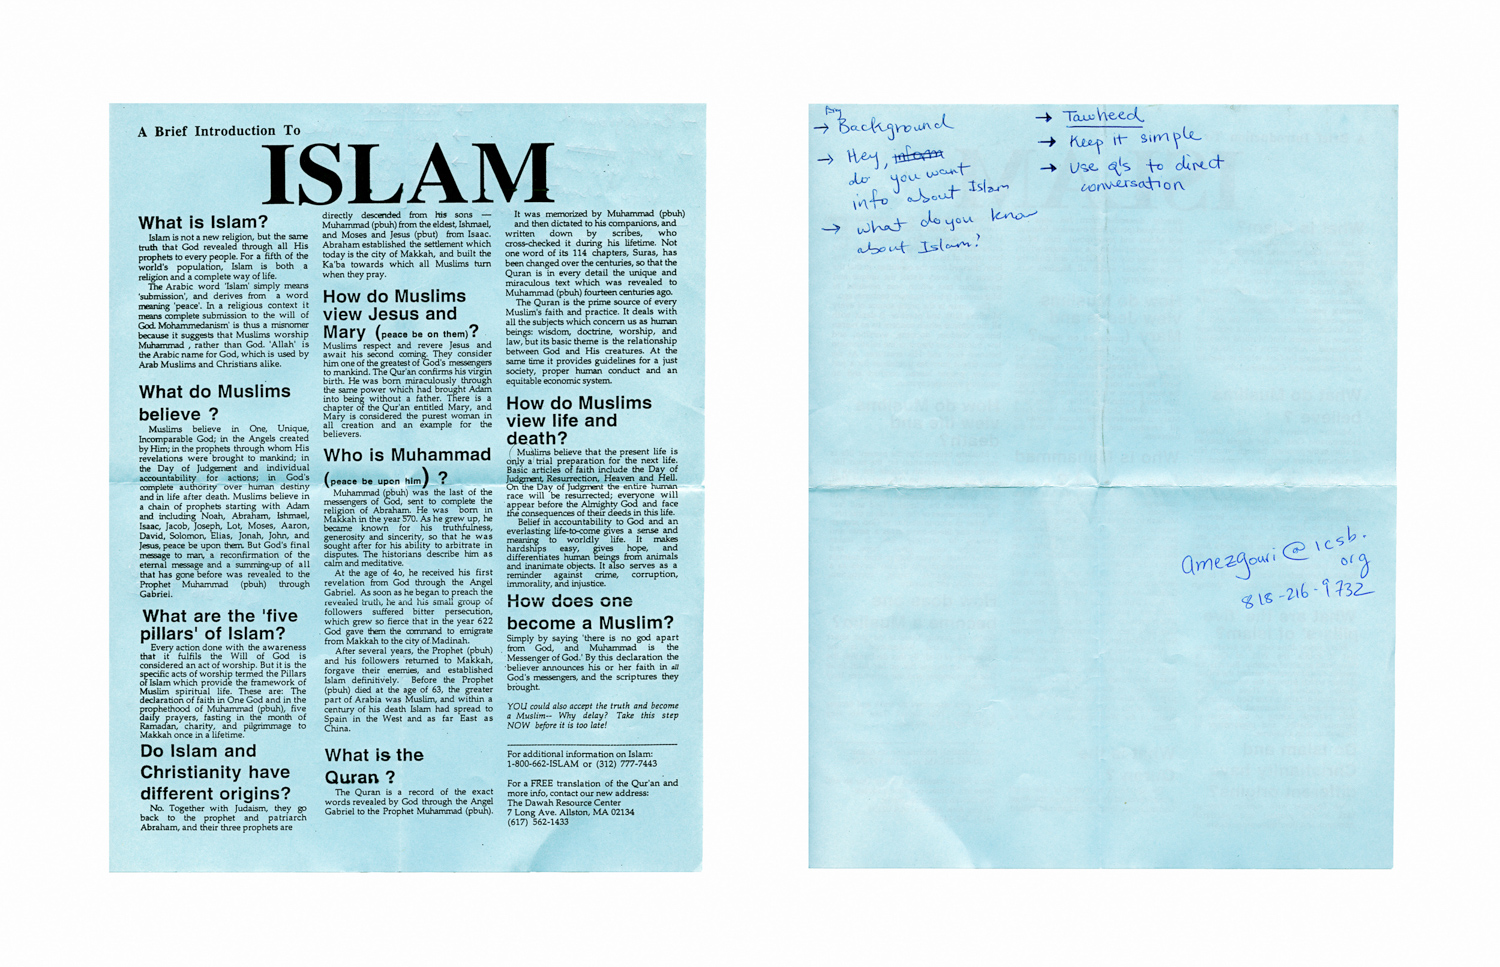 A Brief Introduction To
ISLAM
What is Islam?
Islam is not a new religion, but the same
truth that God revealed through all His
prophets to every people. For a fifth of the
world's population, Islam is both a
religion and a complete way of life.
The Arabic word 'Islam' simply means
'submission', and derives from a word
meaning 'peace'. In a religious context it
means complete submission to the will of
God. Mohammedanism' is thus a misnomer
because it suggests that Muslims worship
Muhammad , rather than God. 'Allah' is
the Arabic name for God, which is used by
Arab Muslims and Christians alike.
What do Muslims
believe ?
Muslims believe in One, Unique,
Incomparable God; in the Angels created
by Him; in the prophets through whom His
revelations were brought to mankind; in
the Day of Judgement and individual
accountability for actions; in God's
complete authority over human destiny
and in life after death. Muslims believe in
a chain of prophets starting with Adam
and including Noah, Abraham, Ishmael,
Isaac, Jacob, Joseph, Lot, Moses, Aaron,
David, Solomon, Elias, Jonah, John, and
Jesus, peace be upon them. But God's final
message to man, a reconfirmation of the
eternal message and a summing-up of all
that has gone before was revealed to the
Prophet Muhammad (pbuh) through
Gabriel.
What are the 'five
pillars' of Islam?
Every action done with the awareness
that it fulfils the Will of God is
considered an act of worship. But it is the
specific acts of worship termed the Pillars
of Islam which provide the framework of
Muslim spiritual life. These are: The
declaration of faith in One God and in the
prophethood of Muhammad (pbuh), five
daily prayers, fasting in the month of
Ramadan, charity, and pilgrimmage to
Makkah once in a lifetime.
Do Islam and
Christianity have
different origins?
No. Together with Judaism, they go
back to the prophet and patriarch
Abraham, and their three prophets are
directly descended from his sons —
Muhammad (pbuh) from the eldest, Ishmael,
and Moses and Jesus (pbut) from Isaac.
Abraham established the settlement which
today is the city of Makkah, and built the
Ka'ba towards which all Muslims turn
when they pray.
How do Muslims
view Jesus and
Mary (peace be on them)?
Muslims respect and revere Jesus and
await his second coming. They consider
him one of the greatest of God's messengers
to mankind. The Qur'an confirms his virgin
birth. He was born miraculously through
the same power which had brought Adam
into being without a father. There is a
chapter of the Qur'an entitled Mary, and
Mary is considered the purest woman in
all creation and an example for the
believers.
Who is Muhammad
(peace be upon him) ?
Muhammad (pbuh) was the last of the
messengers of God, sent to complete the
religion of Abraham. He was born in
Makkah in the year 570. As he grew up, he
became known for his truthfulness,
generosity and sincerity, so that he was
sought after for his ability to arbitrate in
disputes. The historians describe him as
calm and meditative.
At the age of 4o, he received his first
revelation from God through the Angel
Gabriel. As soon as he began to preach the
revealed truth, he and his small group of
followers suffered bitter persecution,
which grew so fierce that in the year 622
God gave them the command to emigrate
from Makkah to the city of Madinah.
After several years, the Prophet (pbuh)
and his followers returned to Makkah,
forgave their enemies, and established
Islam definitively. Before the Prophet
(pbuh) died at the age of 63, the greater
part of Arabia was Muslim, and within a
century of his death Islam had spread to
Spain in the West and as far East as
China.
What is the
Quran ?
The Quran is a record of the exact
words revealed by God through the Angel
Gabriel to the Prophet Muhammad (pbuh).
It was memorized by Muhammad (pbuh)
and then dictated to his companions, and
written down by scribes, who
cross-checked it during his lifetime. Not
one word of its 114 chapters, Suras, has
been changed over the centuries, so that the
Quran is in every detail the unique and
miraculous text which was revealed to
Muhammad (pbuh) fourteen centuries ago.
The Quran is the prime source of every
Muslim's faith and practice. It deals with
all the subjects which concern us as human
beings: wisdom, doctrine, worship, and
law, but its basic theme is the relationship
between God and His creatures. At the
same time it provides guidelines for a just
society, proper human conduct and an
equitable economic system.
How do Muslims
view life and
death?
Muslims believe that the present life is
only a trial preparation for the next life.
Basic articles of faith include the Day of
Judgment, Resurrection, Heaven and Hell.
On the Day of Judgment the entire human
race will be resurrected; everyone will
appear before the Almighty God and face
the consequences of their deeds in this life.
Belief in accountability to God and an
everlasting life-to-come gives a sense and
meaning to worldly life. It makes
hardships easy, gives hope, and
differentiates human beings from animals
and inanimate objects. It also serves as a
reminder against crime, corruption,
immorality, and injustice.
How does one
become a Muslim?
Simply by saying 'there is no god apart
from God, and Muhammad is the
Messenger of God.' By this declaration the
believer announces his or her faith in all
God's messengers, and the scriptures they
brought.
YOU could also accept the truth and become
a Muslim-- Why delay? Take this step
NOW before it is too late!
For additional information on Islam:
1-800-662-ISLAM or (312) 777-7443
For a FREE translation of the Qur'an and
more info, contact our new address:
The Dawah Resource Center
7 Long Ave. Allston, MA 02134
(617) 562-1433
→ Background
→ Hey, inform
do you want
info about Islam
→ what do you know
about Islam?
→ Tawheed
→ Keep it simple
→ Use Q's to direct
conversation
amezgouri@icsb.
org
818-216-9732